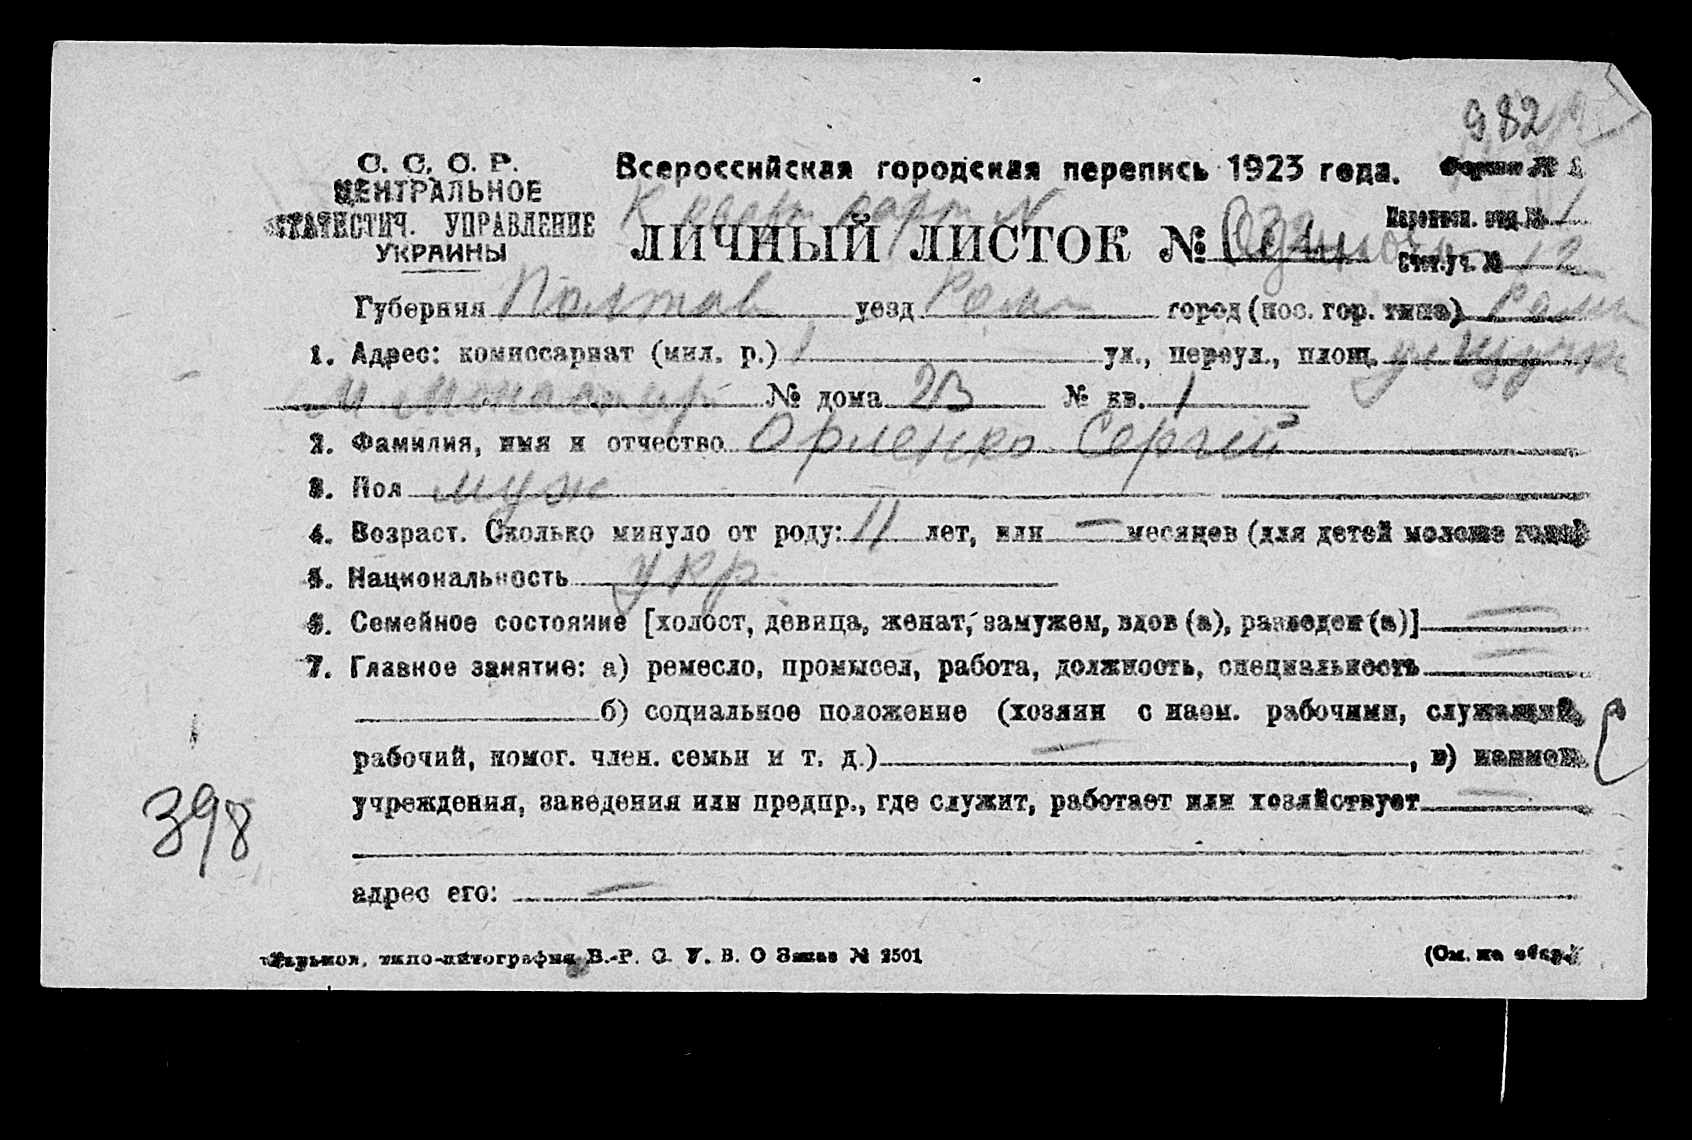 982
С. С. С. Р.
ЦЕНТРАЛЬНОЕ
СТАТИСТИЧ. УПРАВЛЕНИЕ
УКРАИНЫ
Всероссийская городская перепись 1923 года. Форма № 2
К квар. карт. №
ЛИЧНЫЙ ЛИСТОК №
Переписн. отд. № 1
Счет. уч. № 12
Губерния Полтав уезд Ромн город (пос. гор. типа) Ромн
1. Адрес: комиссариат (мил. р.) 1 ул., переул., площ.
М монастир № дома 23 № кв. 1
2. Фамилия, имя и отчество Орленко Сергей
3. Пол муж
4. Возраст. Сколько минуло от роду: 11 лет, или — месяцев (для детей моложе года)
5. Национальность укр
6. Семейное состояние [холост, девица, женат, замужем, вдов (а), разведен (а)] —
7. Главное занятие: а) ремесло, промысел, работа, должность, специальность —
б) социальное положение (хозяин с наем. рабочими, служащий,
рабочий, помог. член. семьи и т. д.) — , в) наимен.
учреждения, заведения или предпр., где служит, работает или хозяйствует —
398
адрес его: —
Харьков, типо-литография В.-Р. С. У. В. О Заказ № 2501
(См. на обор.)